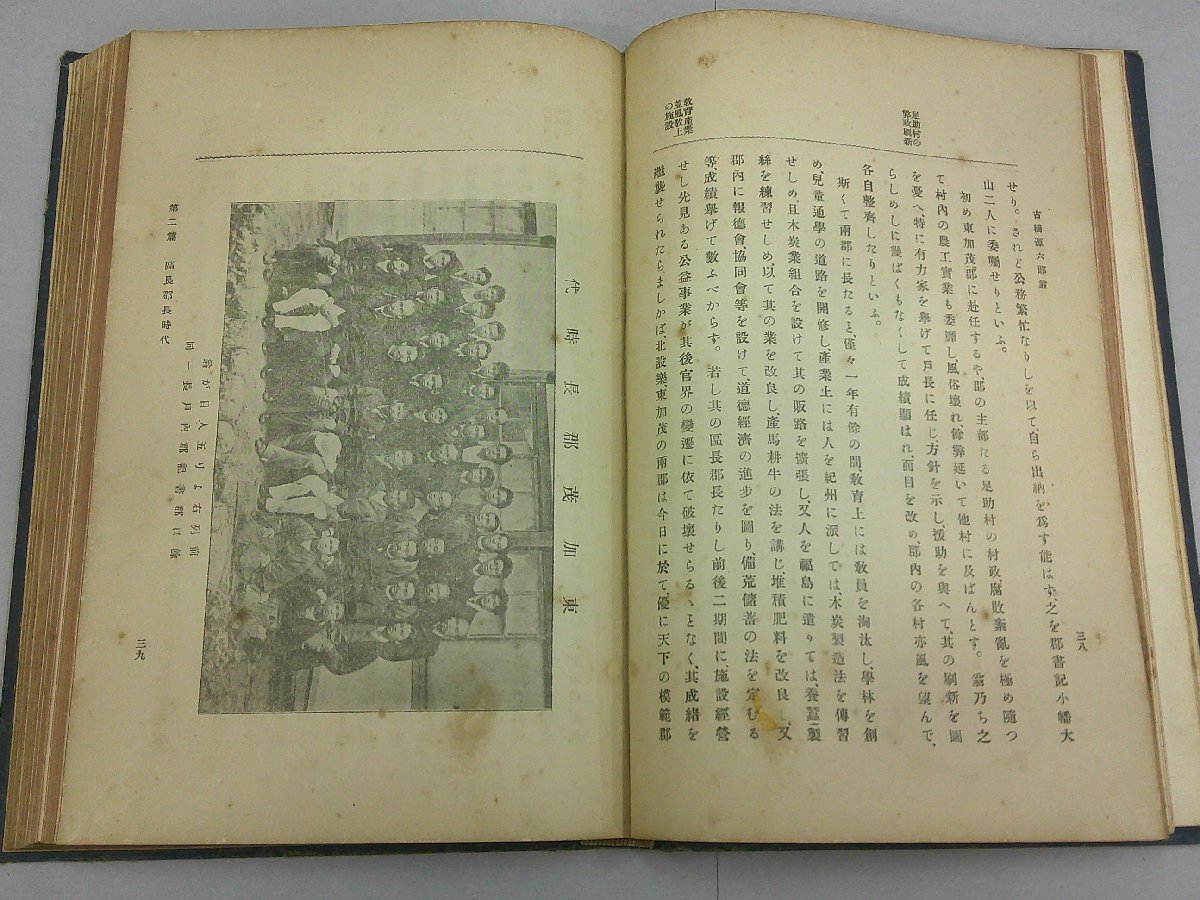 古橋源六郎翁
三八
せり。されど公務繁忙なりしを以て、自ら出納を爲す能はず、之を郡書記小幡大
山二人に委囑せりといふ。
足助村の
弊政刷新
初め東加茂郡に赴任するや、郡の主部たる足助村の村政腐敗紊亂を極め隨つ
て村内の農工實業も委靡し、風俗壞れ、餘弊延いて他村に及ばんとす。翁乃ち之
を憂へ、特に有力家を擧げて戸長に任じ、方針を示し、援助を與へて其の刷新を圖
らしめしに幾ばくもなくして成績顯はれ、面目を改め、郡内の各村亦風を望んで、
各自整齊したりといふ。
教育産業
並風教上
の施設
斯くて兩郡に長たると僅々一年有餘の間、教育上には教員を淘汰し、學林を創
め、兒童通學の道路を開修し、産業上には人を紀州に派しては、木炭製造法を傳習
せしめ、且木炭業組合を設けて其の販路を擴張し、又人を福島に遣りては、養蠶、製
絲を練習せしめ、以て其の業を改良し、産馬耕牛の法を講じ、堆積肥料を改良し、又
郡内に報德會、協同會等を設けて、道德經濟の進歩を圖り、備荒儲蓄の法を定むる
等、成績擧げて數ふべからず。若し其の區長郡長たりし前後二期間に、施設經營
せし先見ある公益事業が其後官界の變遷に依て破壞せらるゝとなく、其成緒を
繼襲せられたらましかば、北設樂、東加茂の兩郡は今日に於て、優に天下の模範郡
東加茂郡長時代
前列右より五人目が翁
餘は郡書記郡内戸長一同
第二篇 區長郡長時代
三九